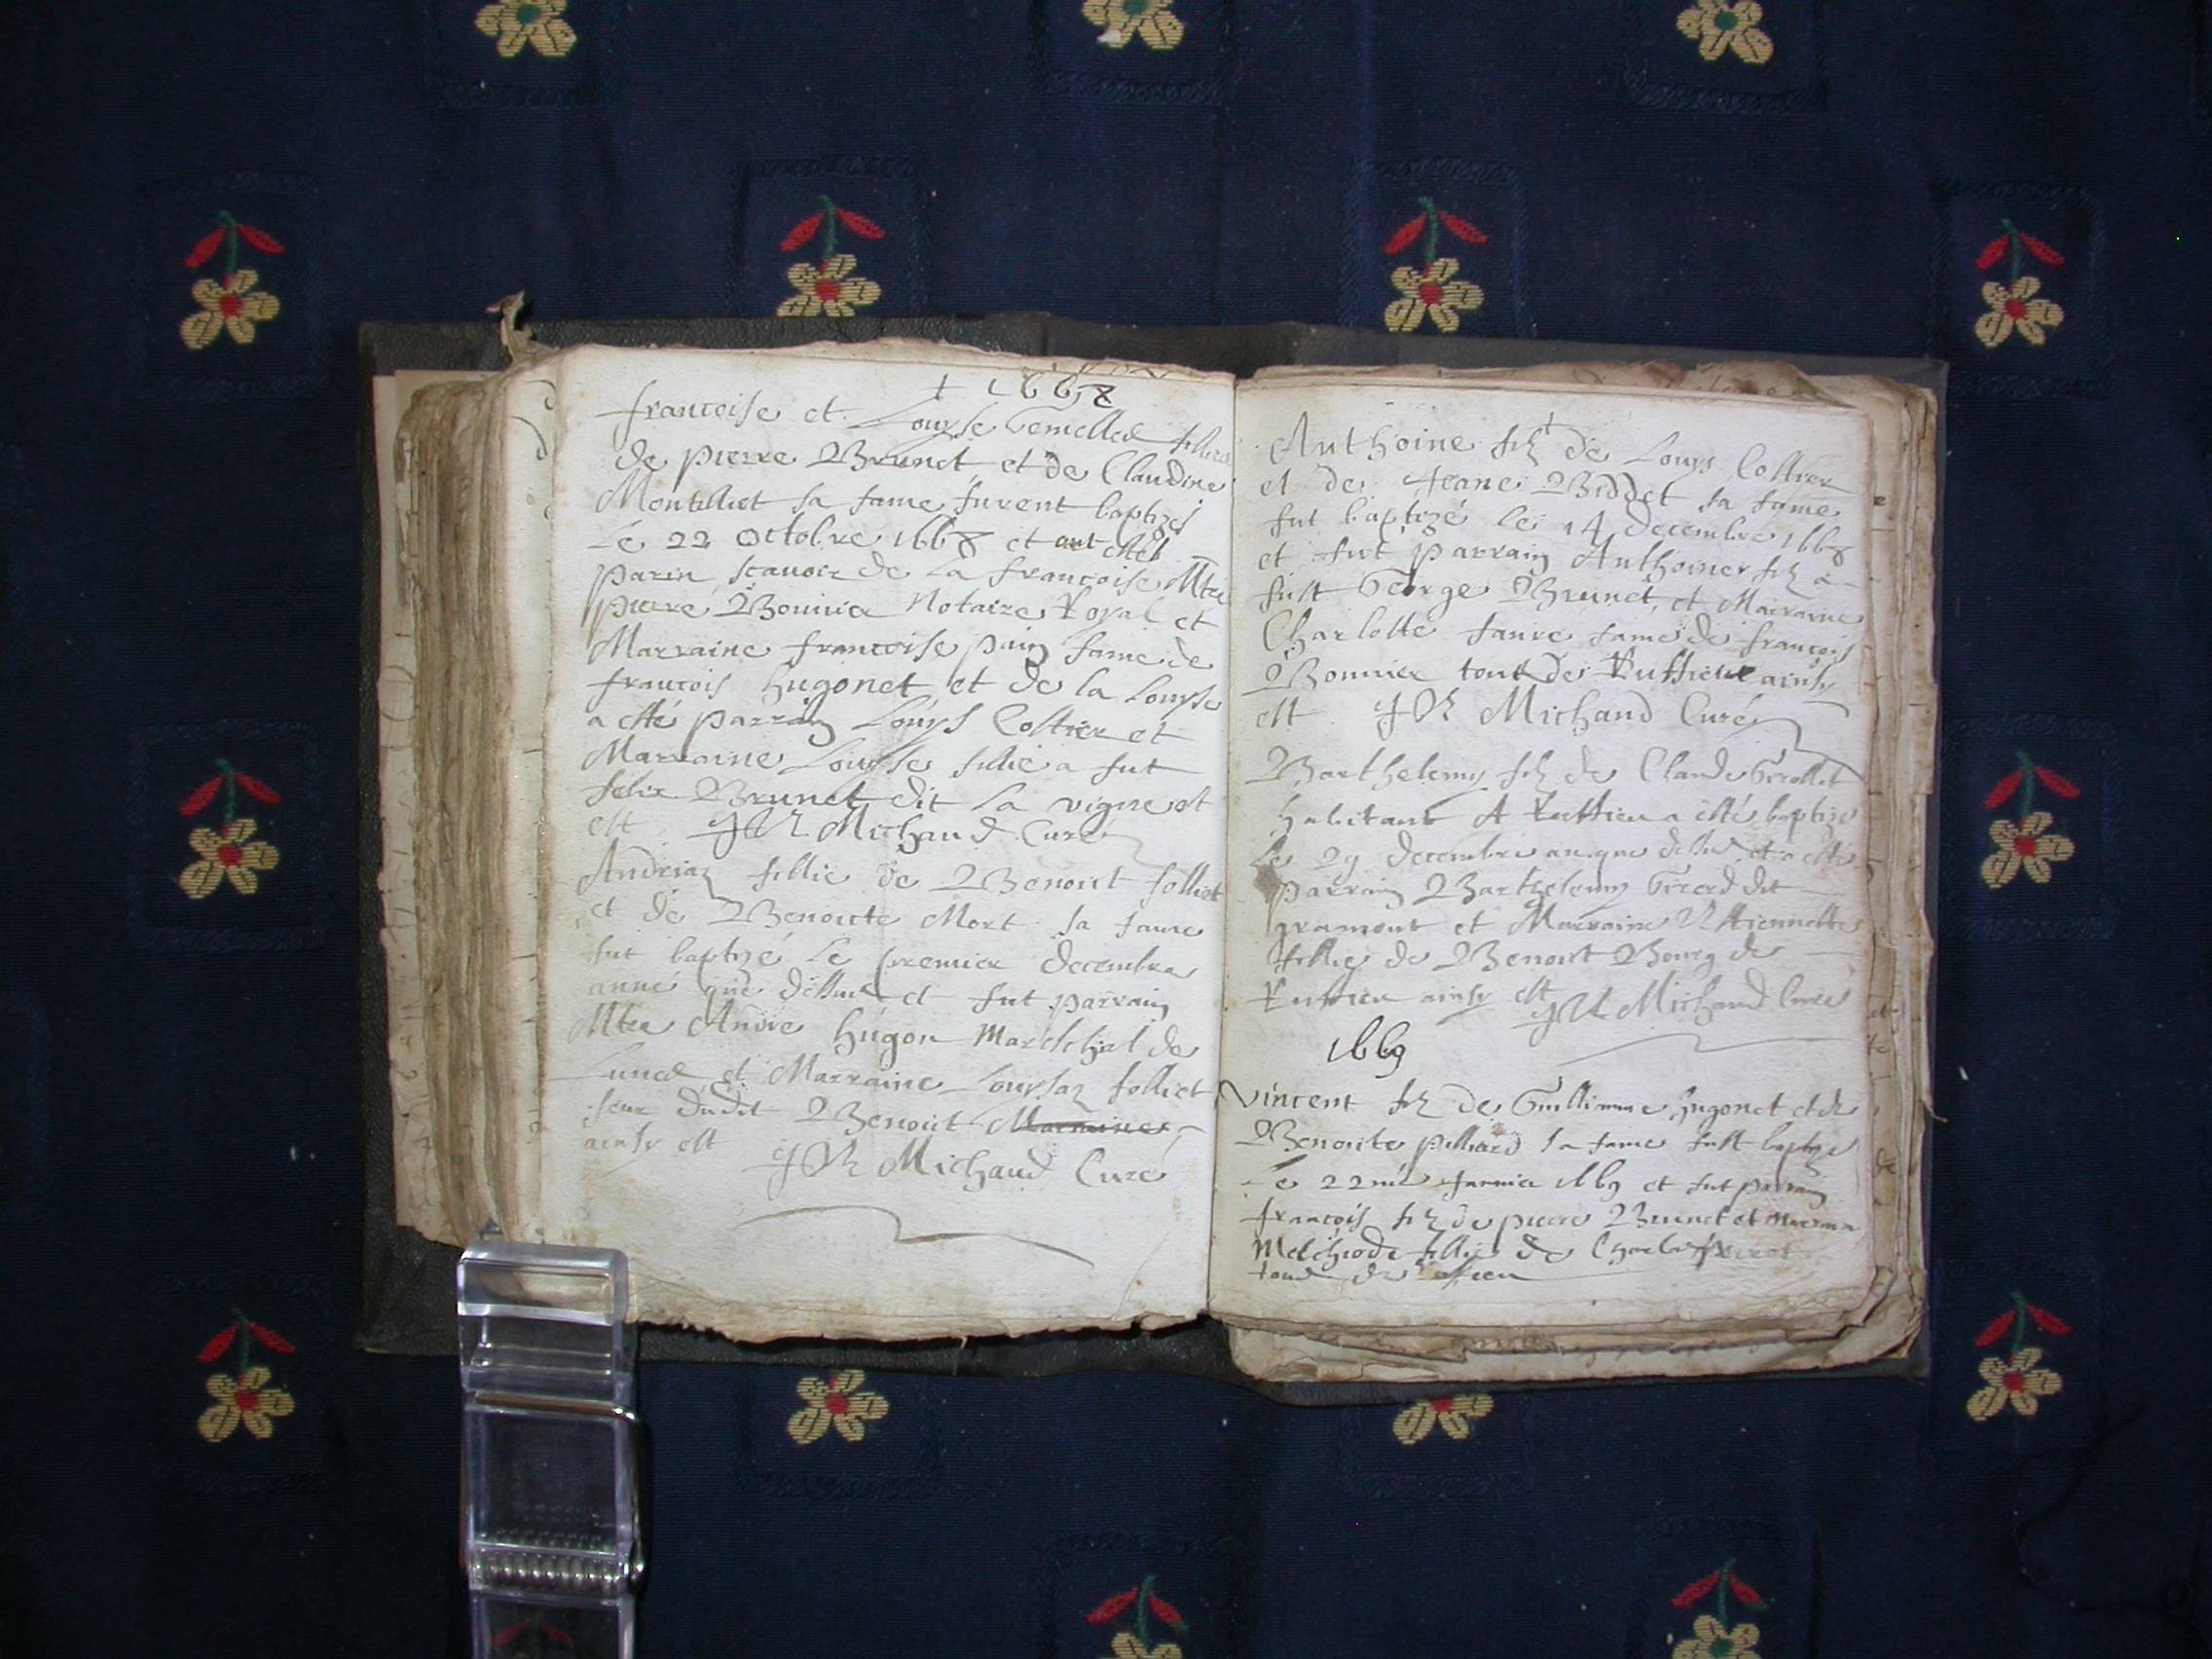 † 1668
francoise et Louyse Gemelles fillies
de pierre Brunet et de Claudine
Montilliet sa fame furent baptizes
Le 22 Octobre 1668 et ont estés
parin scauoir de la francoise Mtre
pierre Bonnier Notaire Royal et
Marraine francoise pain fame de
francois hugonet et de la Louyse
a esté parrain Louys Costier et
Marraine Louyse fillie a fut
felix Brunet dit la vigne et
est Michaud Curé
Andriaz fillie de Benoist folliet
et de Benoicte Mort sa fame
fut baptizé le premier decembre
anné que dessus et fut parrain
Mtre Andre hugon Mareschal de
et Marraine Louysaz folliet
seur dudit Benoit Marraine
ainsy est Michaud Curé
†
Anthoine filz de Louys Costier
et de Jeane Biddet sa fame
fut baptizé le 14 decembre 1668
et fut parrain Anthoine filz a
fust George Brunet, et Marraine
Charlotte faure fame de francois
Bonnier tout de Ruffieu ainsy
est Michaud Curé
Barthelemy filz de Claude
habitant A Ruffieu a esté baptizé
Le 29 decembre an que dessus et a esté
parrain Barthelemy Girerd dit
gramont et Marraine Estiennette
fillie de Benoit Bourg de
Ruffieu ainsy est Michaud Curé
1669
Vincent filz de Guillimme hugonet et de
Benoite pilliard sa fame fust baptizé
Le 22me Janvier 1669 et fut parrain
francois filz de pierre Brunet et Marraine
fillie de Charle
tous de Ruffieu